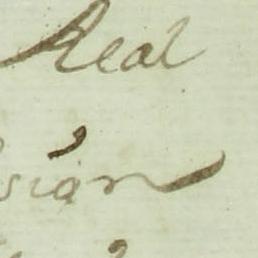 Real
sian